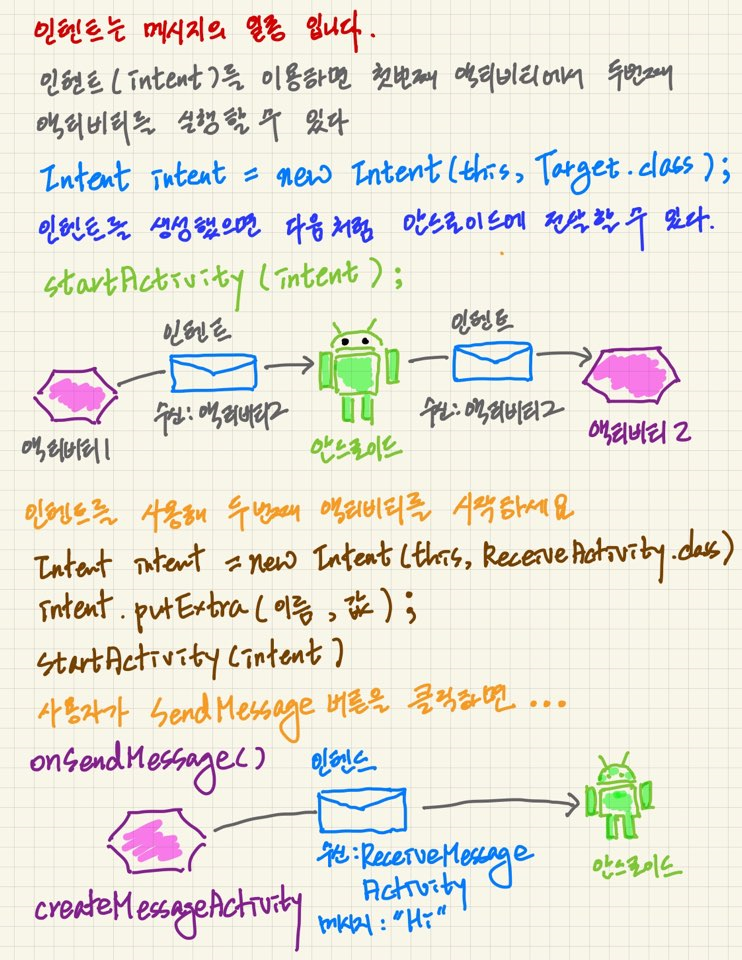 인텐트는 메시지의 일종 입니다.
인텐트(intent)를 이용하면 첫번째 액티비티에서 두번째
액티비티를 실행할 수 있다
Intent intent = new Intent(this, Target.class);
인텐트를 생성했으면 다음처럼 안드로이드에 전달할 수 있다.
startActivity(intent);
인텐트
인텐트
수신: 액티비티2
수신: 액티비티2
액티비티1
안드로이드
액티비티2
인텐트를 사용해 두번째 액티비티를 시작하세요
Intent intent = new Intent(this, ReceiveActivity.class)
intent.putExtra(이름, 값);
startActivity(intent)
사용자가 SendMessage 버튼을 클릭하면 ...
onSendMessage()
인텐트
수신: ReceiveMessage
Activity
메시지: "Hi"
안드로이드
createMessageActivity